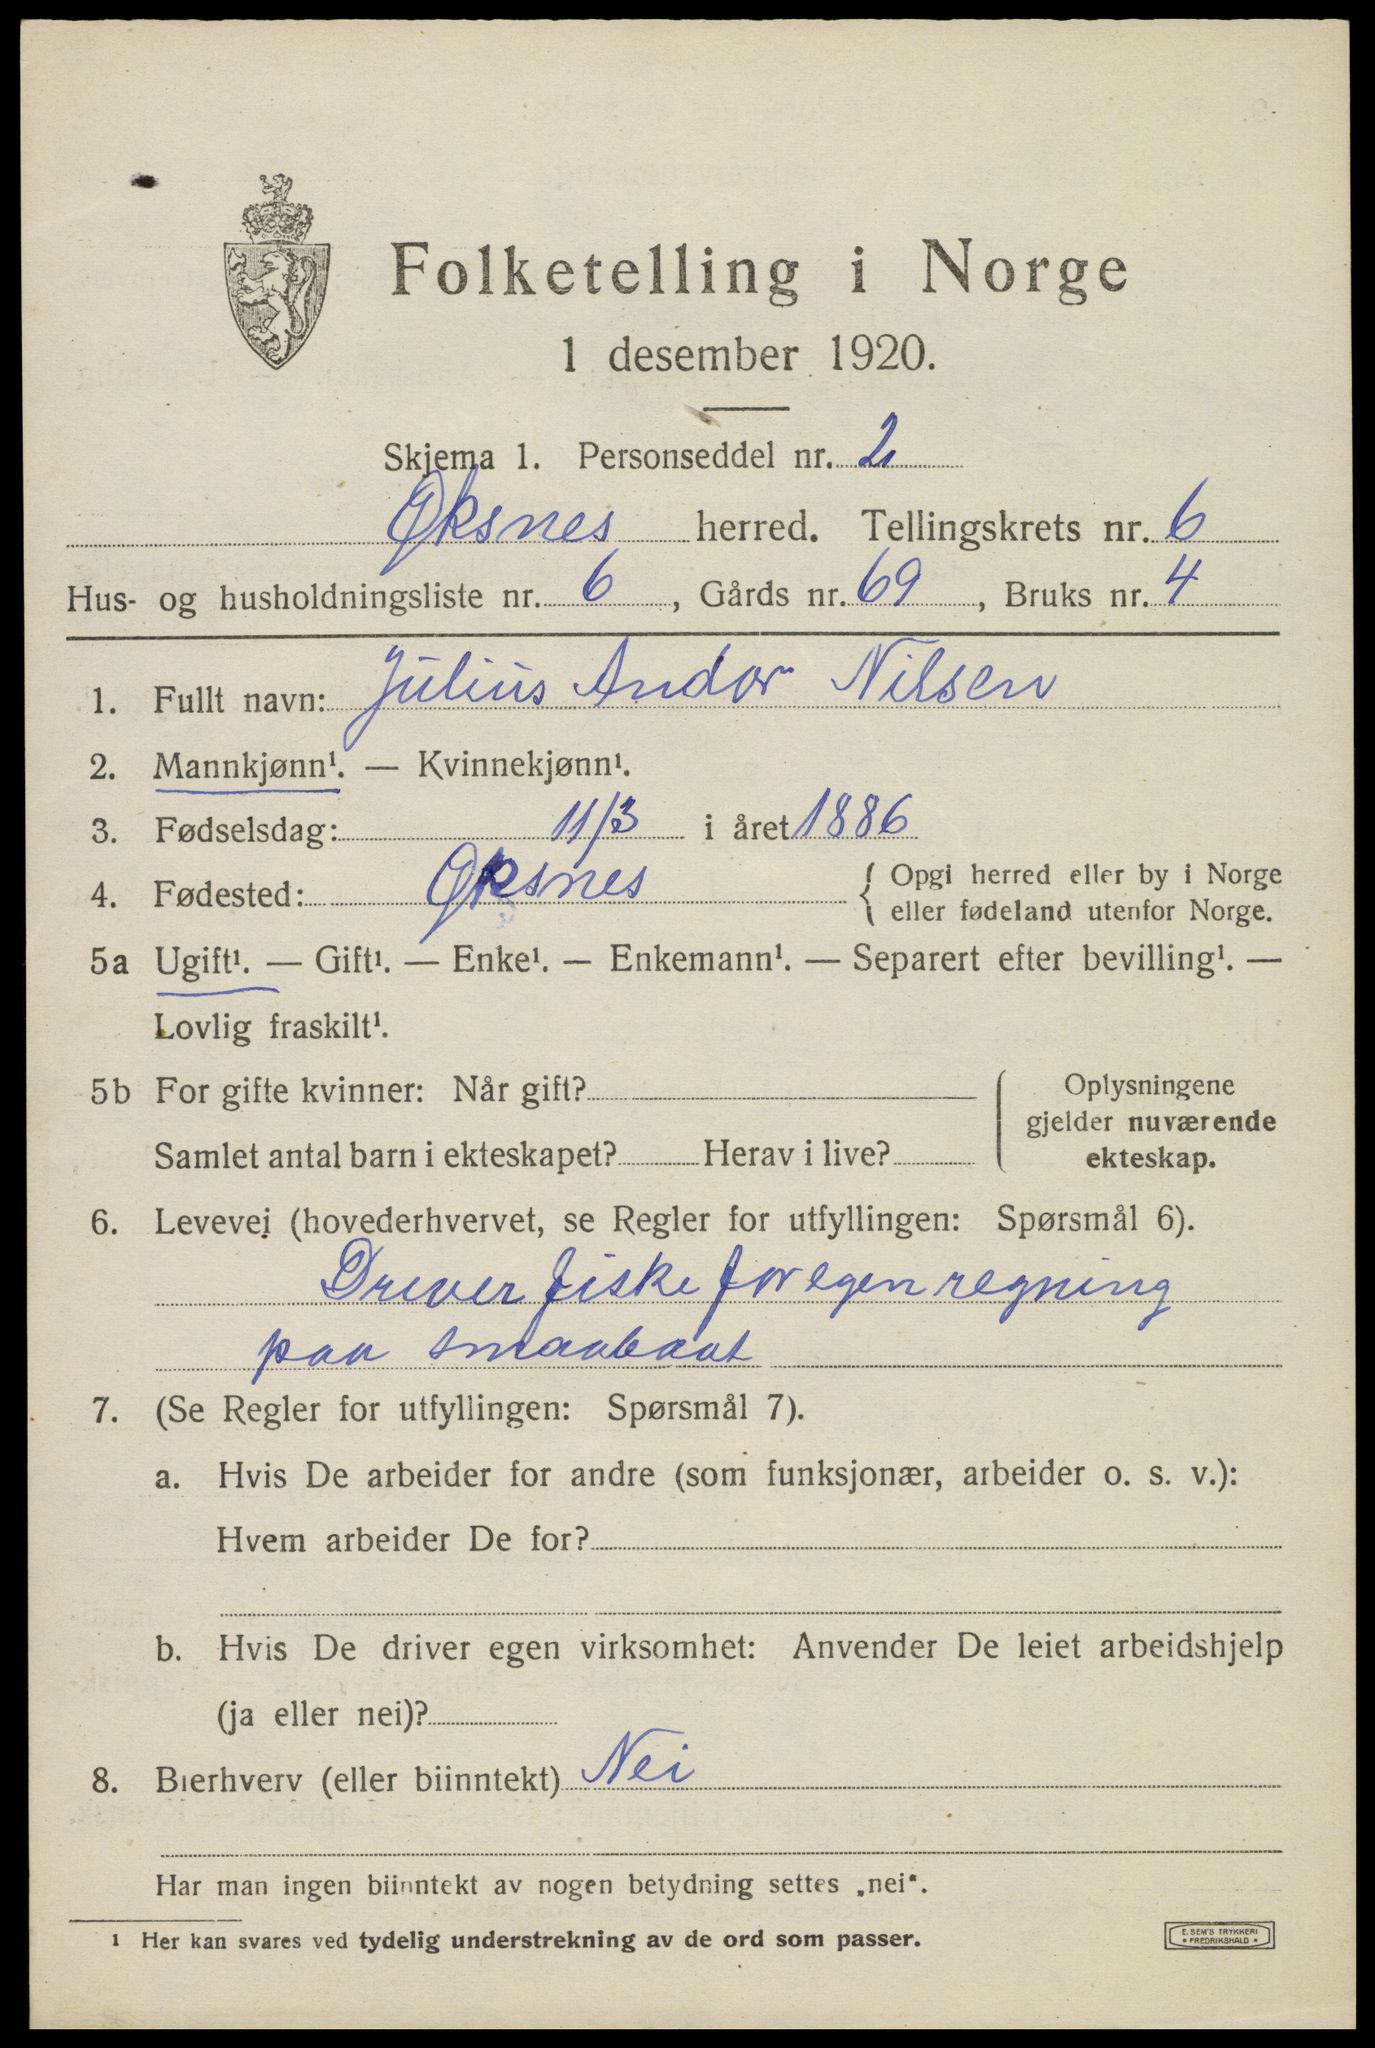 Folketelling i Norge
1 desember 1920.
Skjema 1. Personseddel nr. 2
Øksnes herred. Tellingskrets nr. 6
Hus- og husholdningsliste nr. 6, Gårds nr. 69, Bruks nr. 4
1. Fullt navn: Julius Andor Nilsen
2. Mannkjønn¹. — Kvinnekjønn¹.
3. Fødselsdag: 11/3 i året 1886
4. Fødested: Øksnes { Opgi herred eller by i Norge
eller fødeland utenfor Norge.
5a Ugift¹. — Gift¹. — Enke¹. — Enkemann¹. — Separert efter bevilling¹. —
Lovlig fraskilt¹.
5b For gifte kvinner: Når gift?
Samlet antal barn i ekteskapet? Herav i live?
Oplysningene
gjelder nuværende
ekteskap.
6. Levevei (hovederhvervet, se Regler for utfyllingen: Spørsmål 6).
Driver fiske for egen regning
paa smaabaat
7. (Se Regler for utfyllingen: Spørsmål 7).
a. Hvis De arbeider for andre (som funksjonær, arbeider o. s. v.):
Hvem arbeider De for?
b. Hvis De driver egen virksomhet: Anvender De leiet arbeidshjelp
(ja eller nei)?
8. Bierhverv (eller biinntekt) Nei
Har man ingen biinntekt av nogen betydning settes „nei“.
1 Her kan svares ved tydelig understrekning av de ord som passer.
E. SEM'S TRYKKERI
• FREDRIKSHALD •